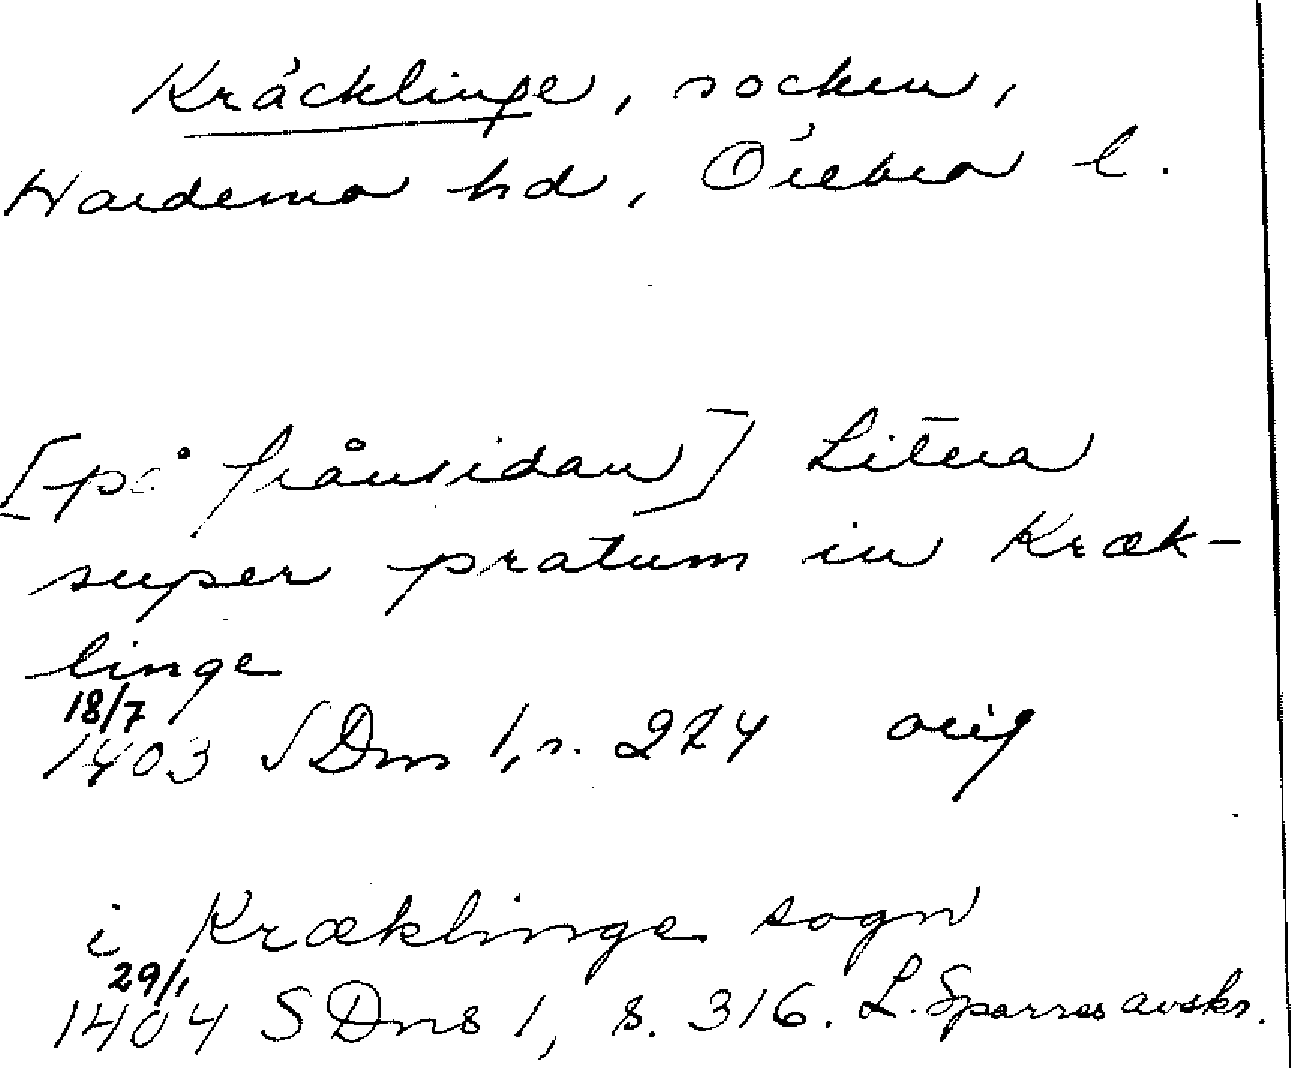 Kräcklinge, socken,
Hardemo hd, Örebro l.
[på frånsidan] Litera
super pratum in Kræk-
linge
18/7
1403 SDns 1, s. 274 orig
i Kræklinge sogn
29/1
1404 SDns 1, s. 316. L. Sparres avskr.